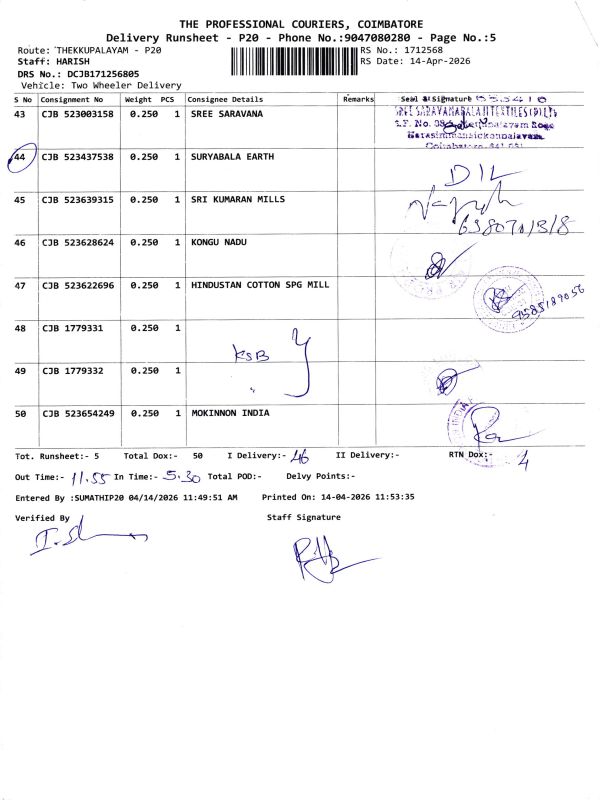 THE PROFESSIONAL COURIERS, COIMBATORE
Delivery Runsheet - P20 - Phone No.:9047080280 - Page No.:5
Route: THEKKUPALAYAM - P20 RS No.: 1712568
Staff: HARISH RS Date: 14-Apr-2026
DRS No.: DCJB171256805
Vehicle: Two Wheeler Delivery
S No Consignment No Weight PCS Consignee Details Remarks Seal & Signature
43 CJB 523003158 0.250 1 SREE SARAVANA
44 CJB 523437538 0.250 1 SURYABALA EARTH
DIL
45 CJB 523639315 0.250 1 SRI KUMARAN MILLS
46 CJB 523628624 0.250 1 KONGU NADU
47 CJB 523622696 0.250 1 HINDUSTAN COTTON SPG MILL
9585189056
48 CJB 1779331 0.250 1
KSB
49 CJB 1779332 0.250 1
50 CJB 523654249 0.250 1 MOKINNON INDIA
Tot. Runsheet:- 5 Total Dox:- 50 I Delivery:- 46 II Delivery:- RTN Dox:- 4
Out Time:- 11.55 In Time:- 5.30 Total POD:- Delvy Points:-
Entered By :SUMATHIP20 04/14/2026 11:49:51 AM Printed On: 14-04-2026 11:53:35
Verified By Staff Signature